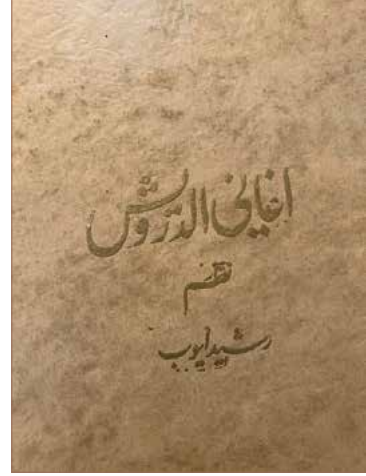 اغاني الدرويش
نظم
رشيد ايوب